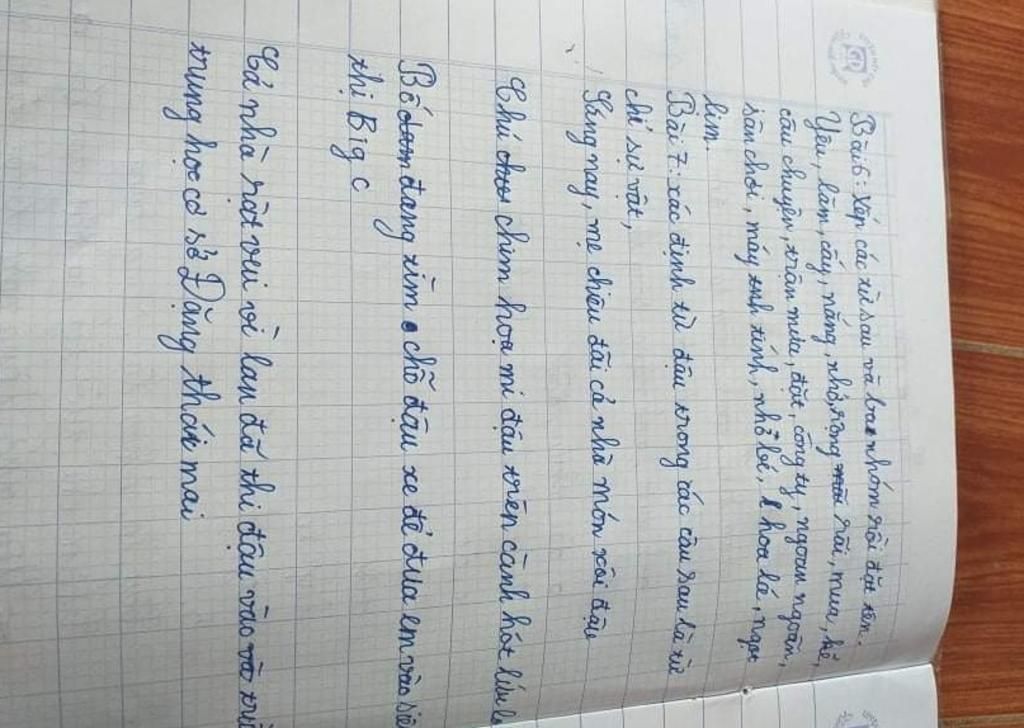 Bài 6: Xếp các từ sau và ba nhóm rồi đặt tên.
Yêu, làm, cấy, nắng, nhớ, rộng rãi, mua, kể,
câu chuyện, trận mưa, đặt, công ty, ngoan ngoãn,
sân chơi, máy tính, nhỏ bé, hoa lá, ngọt
lim.
Bài 7: xác định từ đậu trong các câu sau là từ
chỉ sự vật,
Sáng nay, mẹ chiêu đãi cả nhà món xôi đậu
Chú chim hoạ mi đậu trên cành hót líu
Bố đang tìm chỗ đậu xe để đưa em vào siê
thị Big c
Cả nhà rất vui vì lan đã thi đậu vào
trung học cơ sở Đặng thái mai